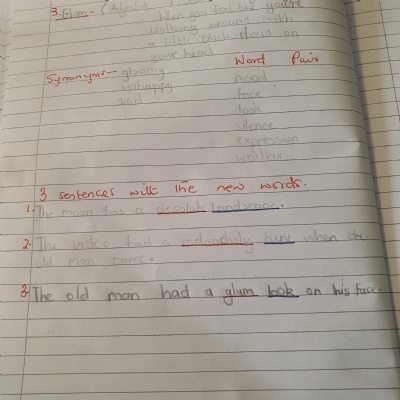 3. Glum - (Adjective)
When you feel like you're
walking around with
a little black cloud on
your head.
Word Pair
Synonyms - gloomy
mood
unhappy
face
sad
look
silence
expression
weather
3 sentences with the new words.
1. The moon has a desolate landscape.
2. The video had a melancholy tune when the
old man came.
3. The old man had a glum look on his face.